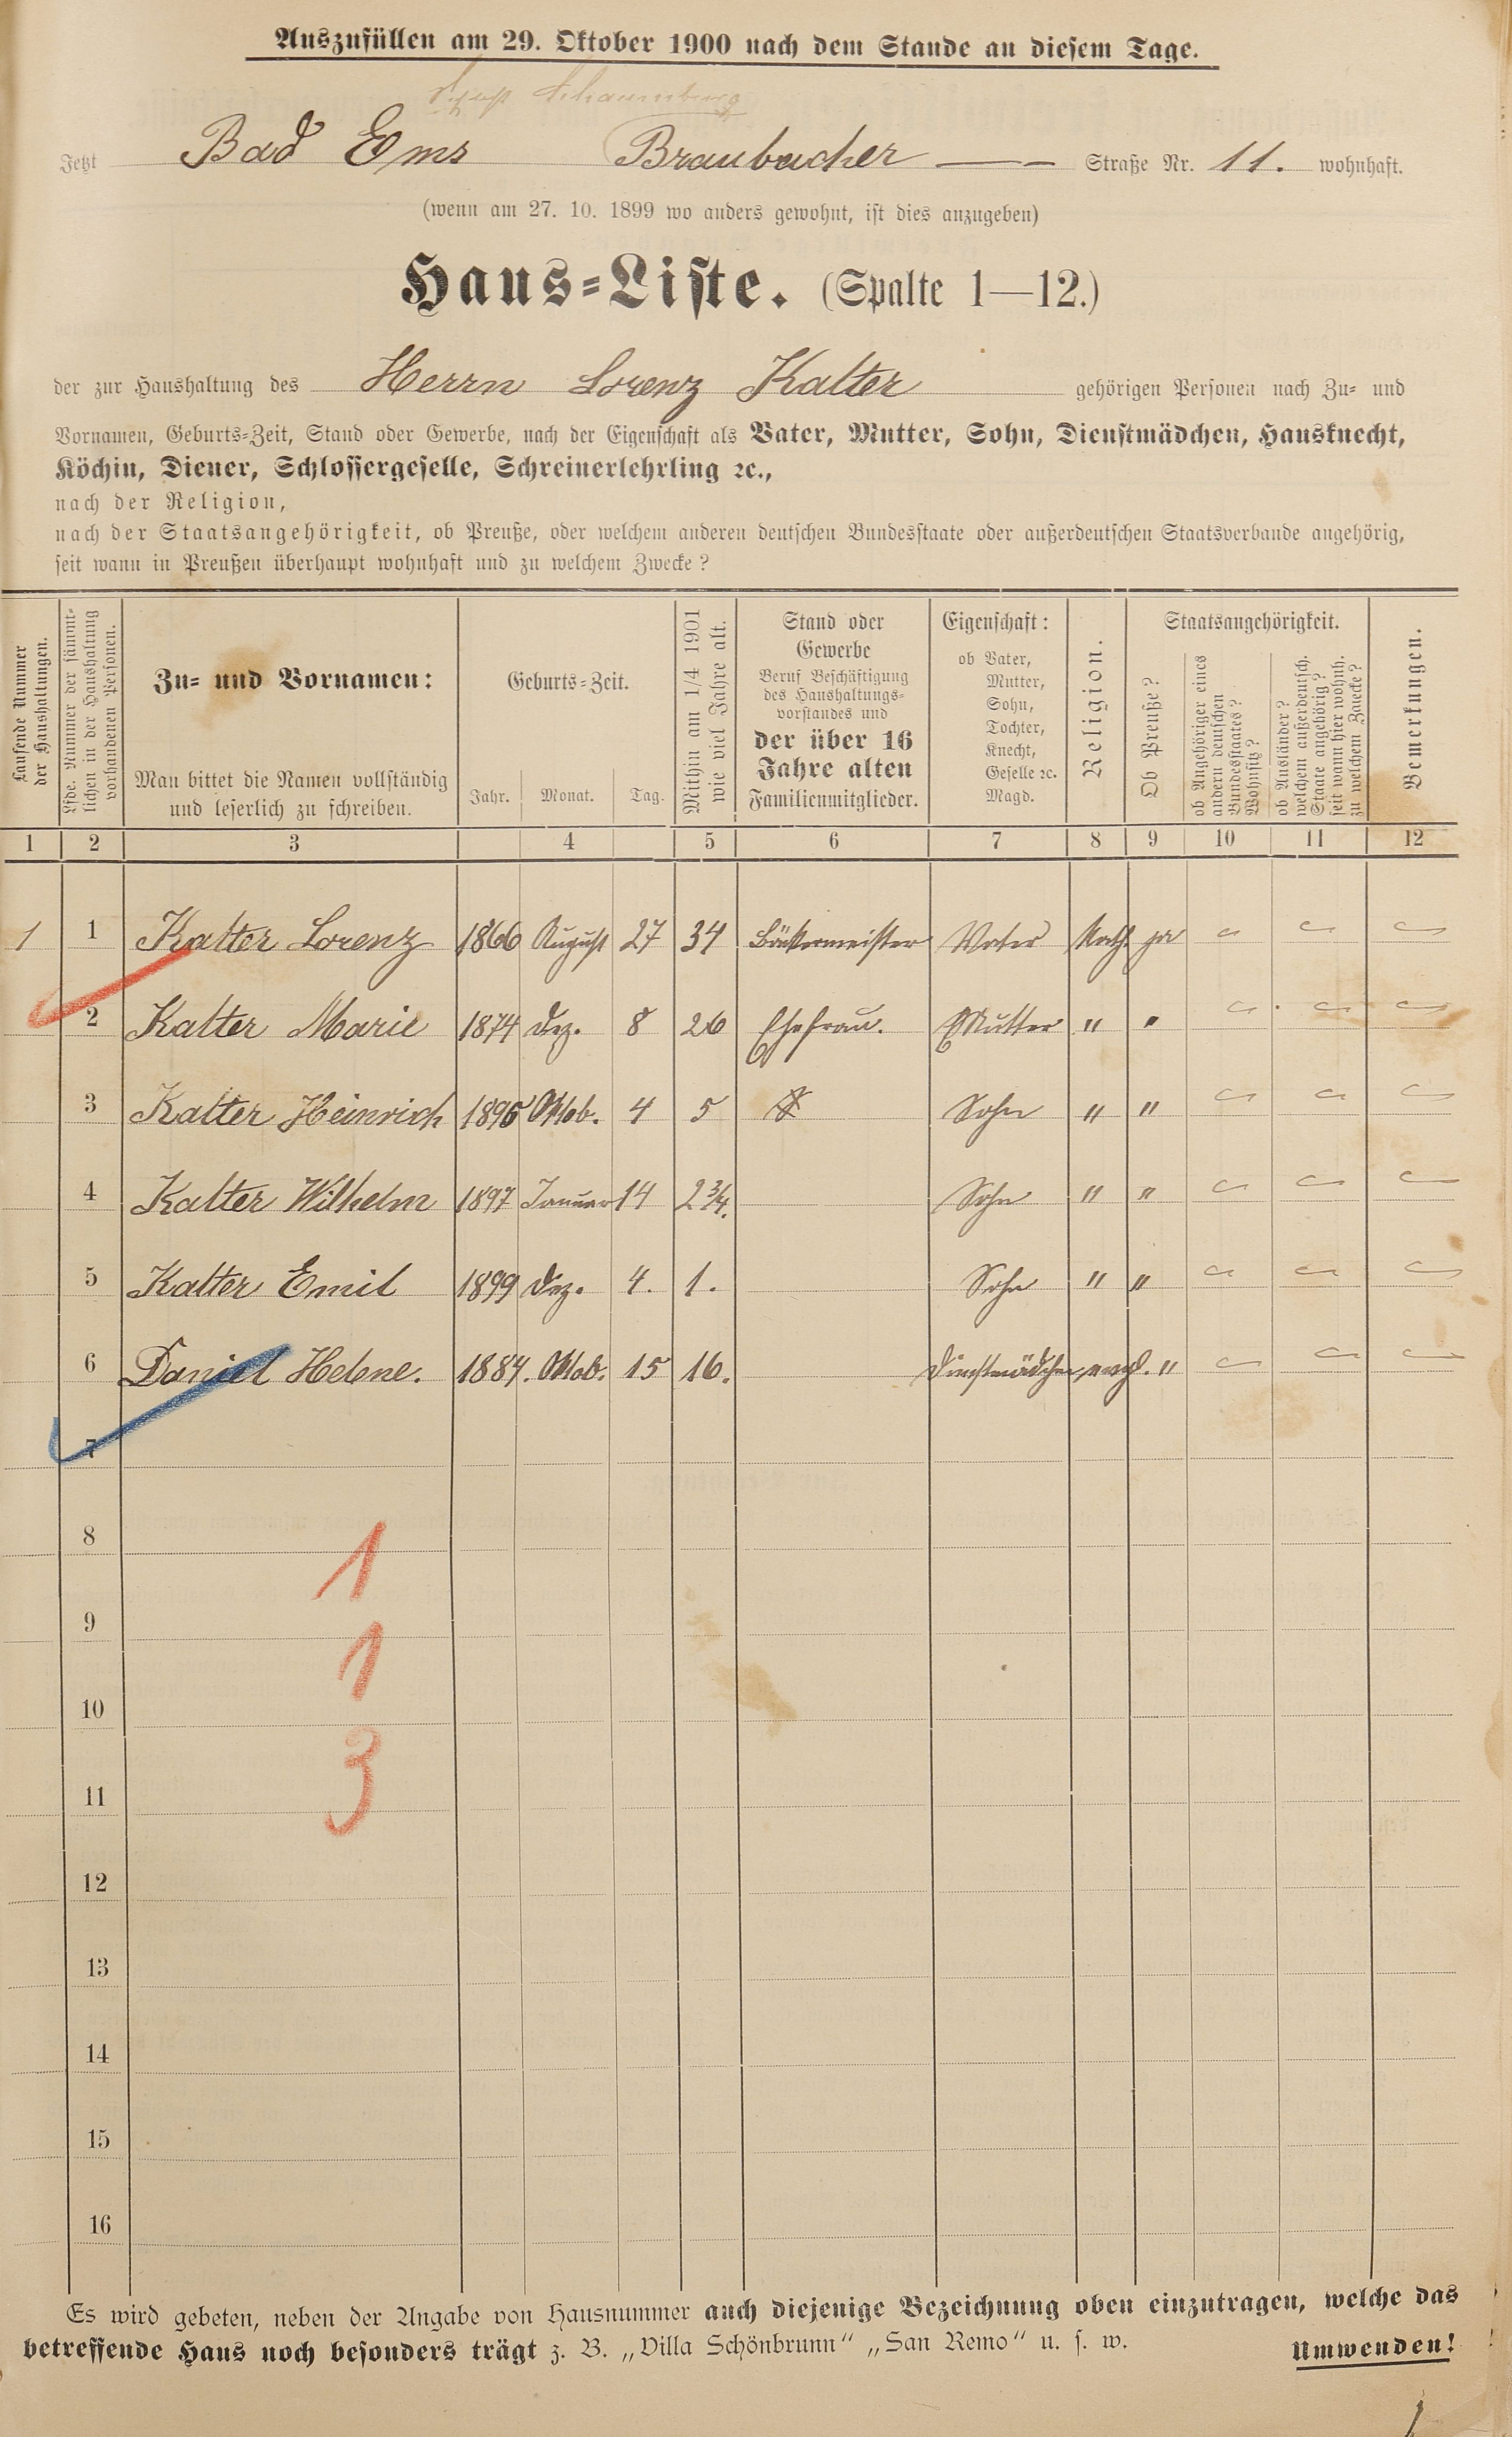 Auszufüllen am 29. Oktober 1900 nach dem Stande an diesem Tage.
Schaumburg
Jetzt Bad Ems Braubacher — — Straße Nr. 11. wohnhaft.
(wenn am 27. 10. 1899 wo anders gewohnt, ist dies anzugeben)
Haus-Liste. (Spalte 1—12.)
der zur Haushaltung des Herrn Lorenz Kalter gehörigen Personen nach Zu- und
Vornamen, Geburts-Zeit, Stand oder Gewerbe, nach der Eigenschaft als Vater, Mutter, Sohn, Dienstmädchen, Hausknecht,
Köchin, Diener, Schlossergeselle, Schreinerlehrling ꝛc.,
nach der Religion,
nach der Staatsangehörigkeit, ob Preuße, oder welchem anderen deutschen Bundesstaate oder außerdeutschen Staatsverbande angehörig,
seit wann in Preußen überhaupt wohnhaft und zu welchem Zwecke?
Laufende Nummer
der Haushaltungen.
Lfde. Nummer der sämmt-
lichen in der Haushaltung
vorhandenen Personen.
Zu- und Vornamen:
Man bittet die Namen vollständig
und leserlich zu schreiben.
Geburts-Zeit.
Jahr. Monat. Tag.
Mithin am 1/4 1901
wie viel Jahre alt.
Stand oder
Gewerbe
Beruf Beschäftigung
des Haushaltungs-
vorstandes und
der über 16
Jahre alten
Familienmitglieder.
Eigenschaft:
ob Vater,
Mutter,
Sohn,
Tochter,
Knecht,
Geselle ꝛc.
Magd.
Religion.
Staatsangehörigkeit.
Ob Preuße?
ob Angehöriger eines
andern deutschen
Bundesstaates?
Wohnsitz?
ob Ausländer?
welchem außerdeutsch.
Staate angehörig?
seit wann hier wohnh.
zu welchem Zwecke?
Bemerkungen.
1 2 3 4 5 6 7 8 9 10 11 12
1 1 Kalter Lorenz 1866 August 27 34 Bäckermeister Vater Kath. ja
2 Kalter Marie 1874 Dez. 8 26 Ehefrau. Mutter " "
3 Kalter Heinrich 1895 Oktob. 4 5 Sohn " "
4 Kalter Wilhelm 1897 Januar 14 2 3/4. Sohn " "
5 Kalter Emil 1899 Dez. 4. 1. Sohn " "
6 Daniel Helene. 1884. Oktob. 15 16. Dienstmädchen evgl. "
7
8
1
9
1
10
3
11
12
13
14
15
16
Es wird gebeten, neben der Angabe von Hausnummer auch diejenige Bezeichnung oben einzutragen, welche das
betreffende Haus noch besonders trägt z. B. „Villa Schönbrunn“ „San Remo“ u. s. w. Umwenden!